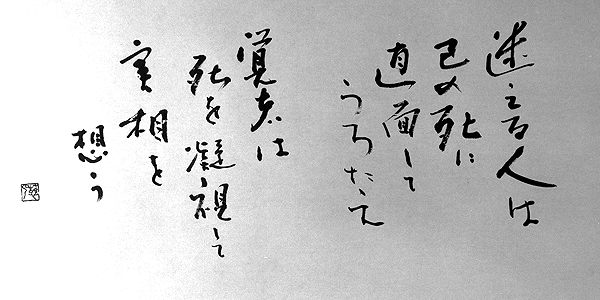 迷える人は
己の死に
直面して
うろたえ
覚者は
死を凝視して
実相を
想う